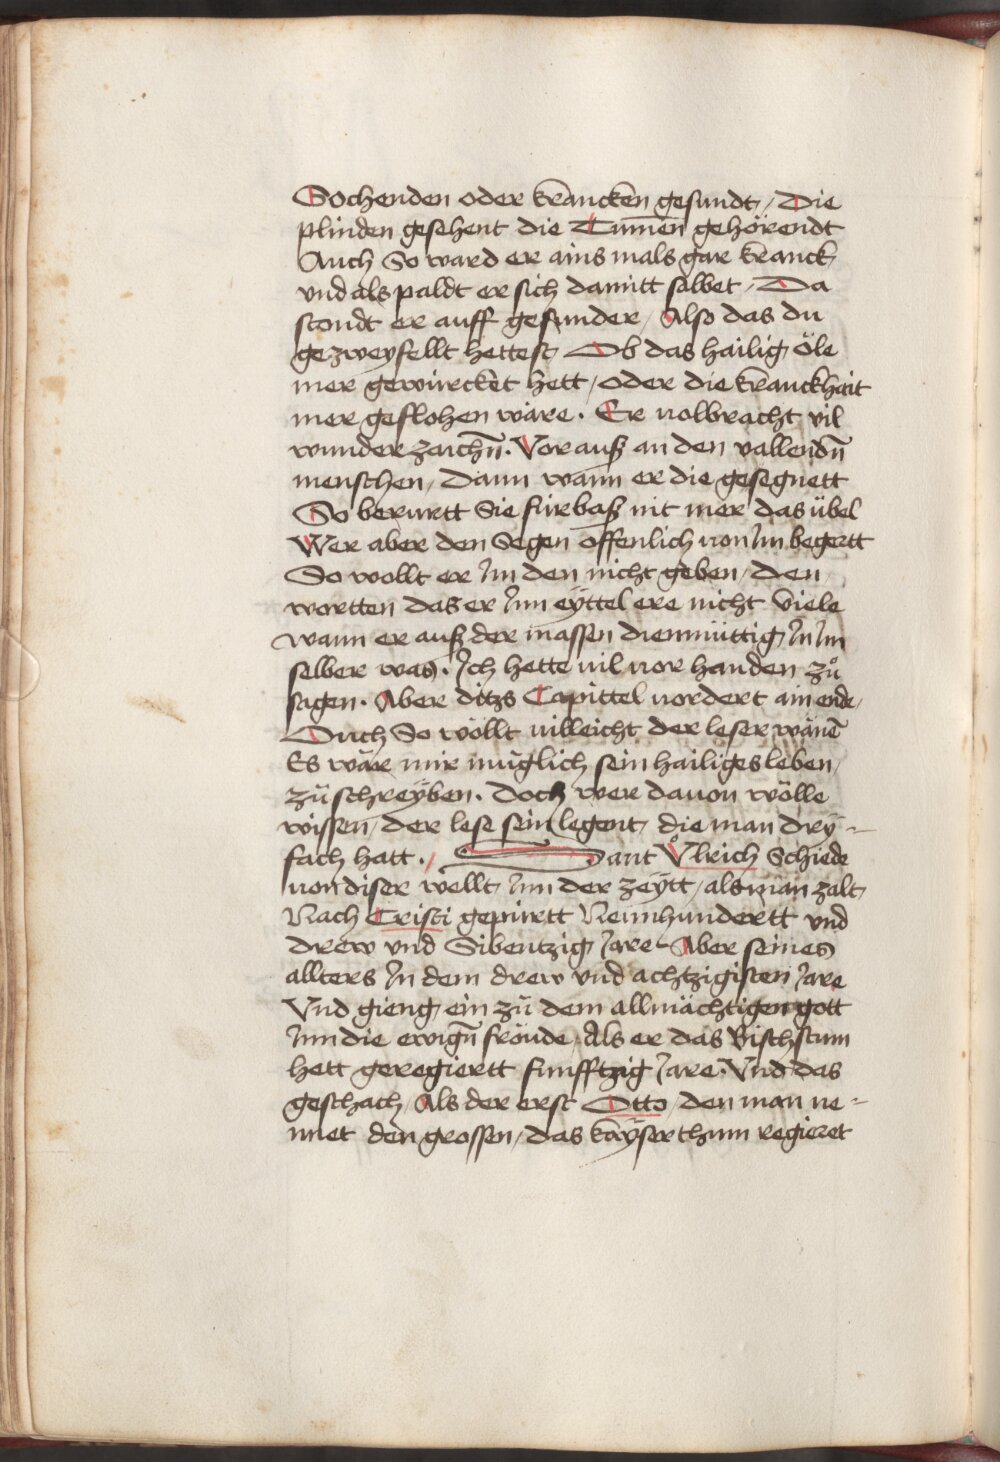 Sochenden oder kranncken gesundt / Die
plinden gesehent die Tumen̄ gehörendt
Auch So ward er ains mals gar kranck
vnd als paldt er sich damitt salbet / Da
stondt er auff gesunder / Also das du
gezweyfellt hettest Ob das hailig öle
mer gewürcket hett / oder die kranckhait
mer geflohen wäre. Er uolbracht vil
wunderzaichn̄. Vorauß an den vallendn̄
menschen / Dann wann er die gesegnett
So berurtt Sie fürbaß nit mer das übel
Wer aber den Segen offenlich uon Im begertt
So wollt er Im den nicht geben / den
wortten das er Inn eyttel ere nicht viele
wann er auß der massen diemüttig In Im
selber was. Ich hette uil uor handen zů
sagen. Aber ditzs Capittel uordert ain ende /
Ouch So wöllt uilleicht der leser wänē
Es wär mir müglich sein hailiges leben /
zůschreyben. Doch wer dauon wölle
wissen / der lese sein legent die man dry-
fach hatt. / Sant Vͦlrich Schiede
uon diser wellt Inn der zeytt / als man zalt
Nach Cristi gepurtt Neunhundertt vnd
drew vnd Sibentzig Jare Aber seines
allters In dem drew vnd achtzigisten Jare
Vnd gieng ein zů dem allmächtigen gott
Inn die ewign̄ fröude / Als er das Bischstum
hett geregiertt funfftzig Jare. Vnd das
geschach / Als der erst Otto / den man ne-
nnet den grossen / das kayserthum regieret